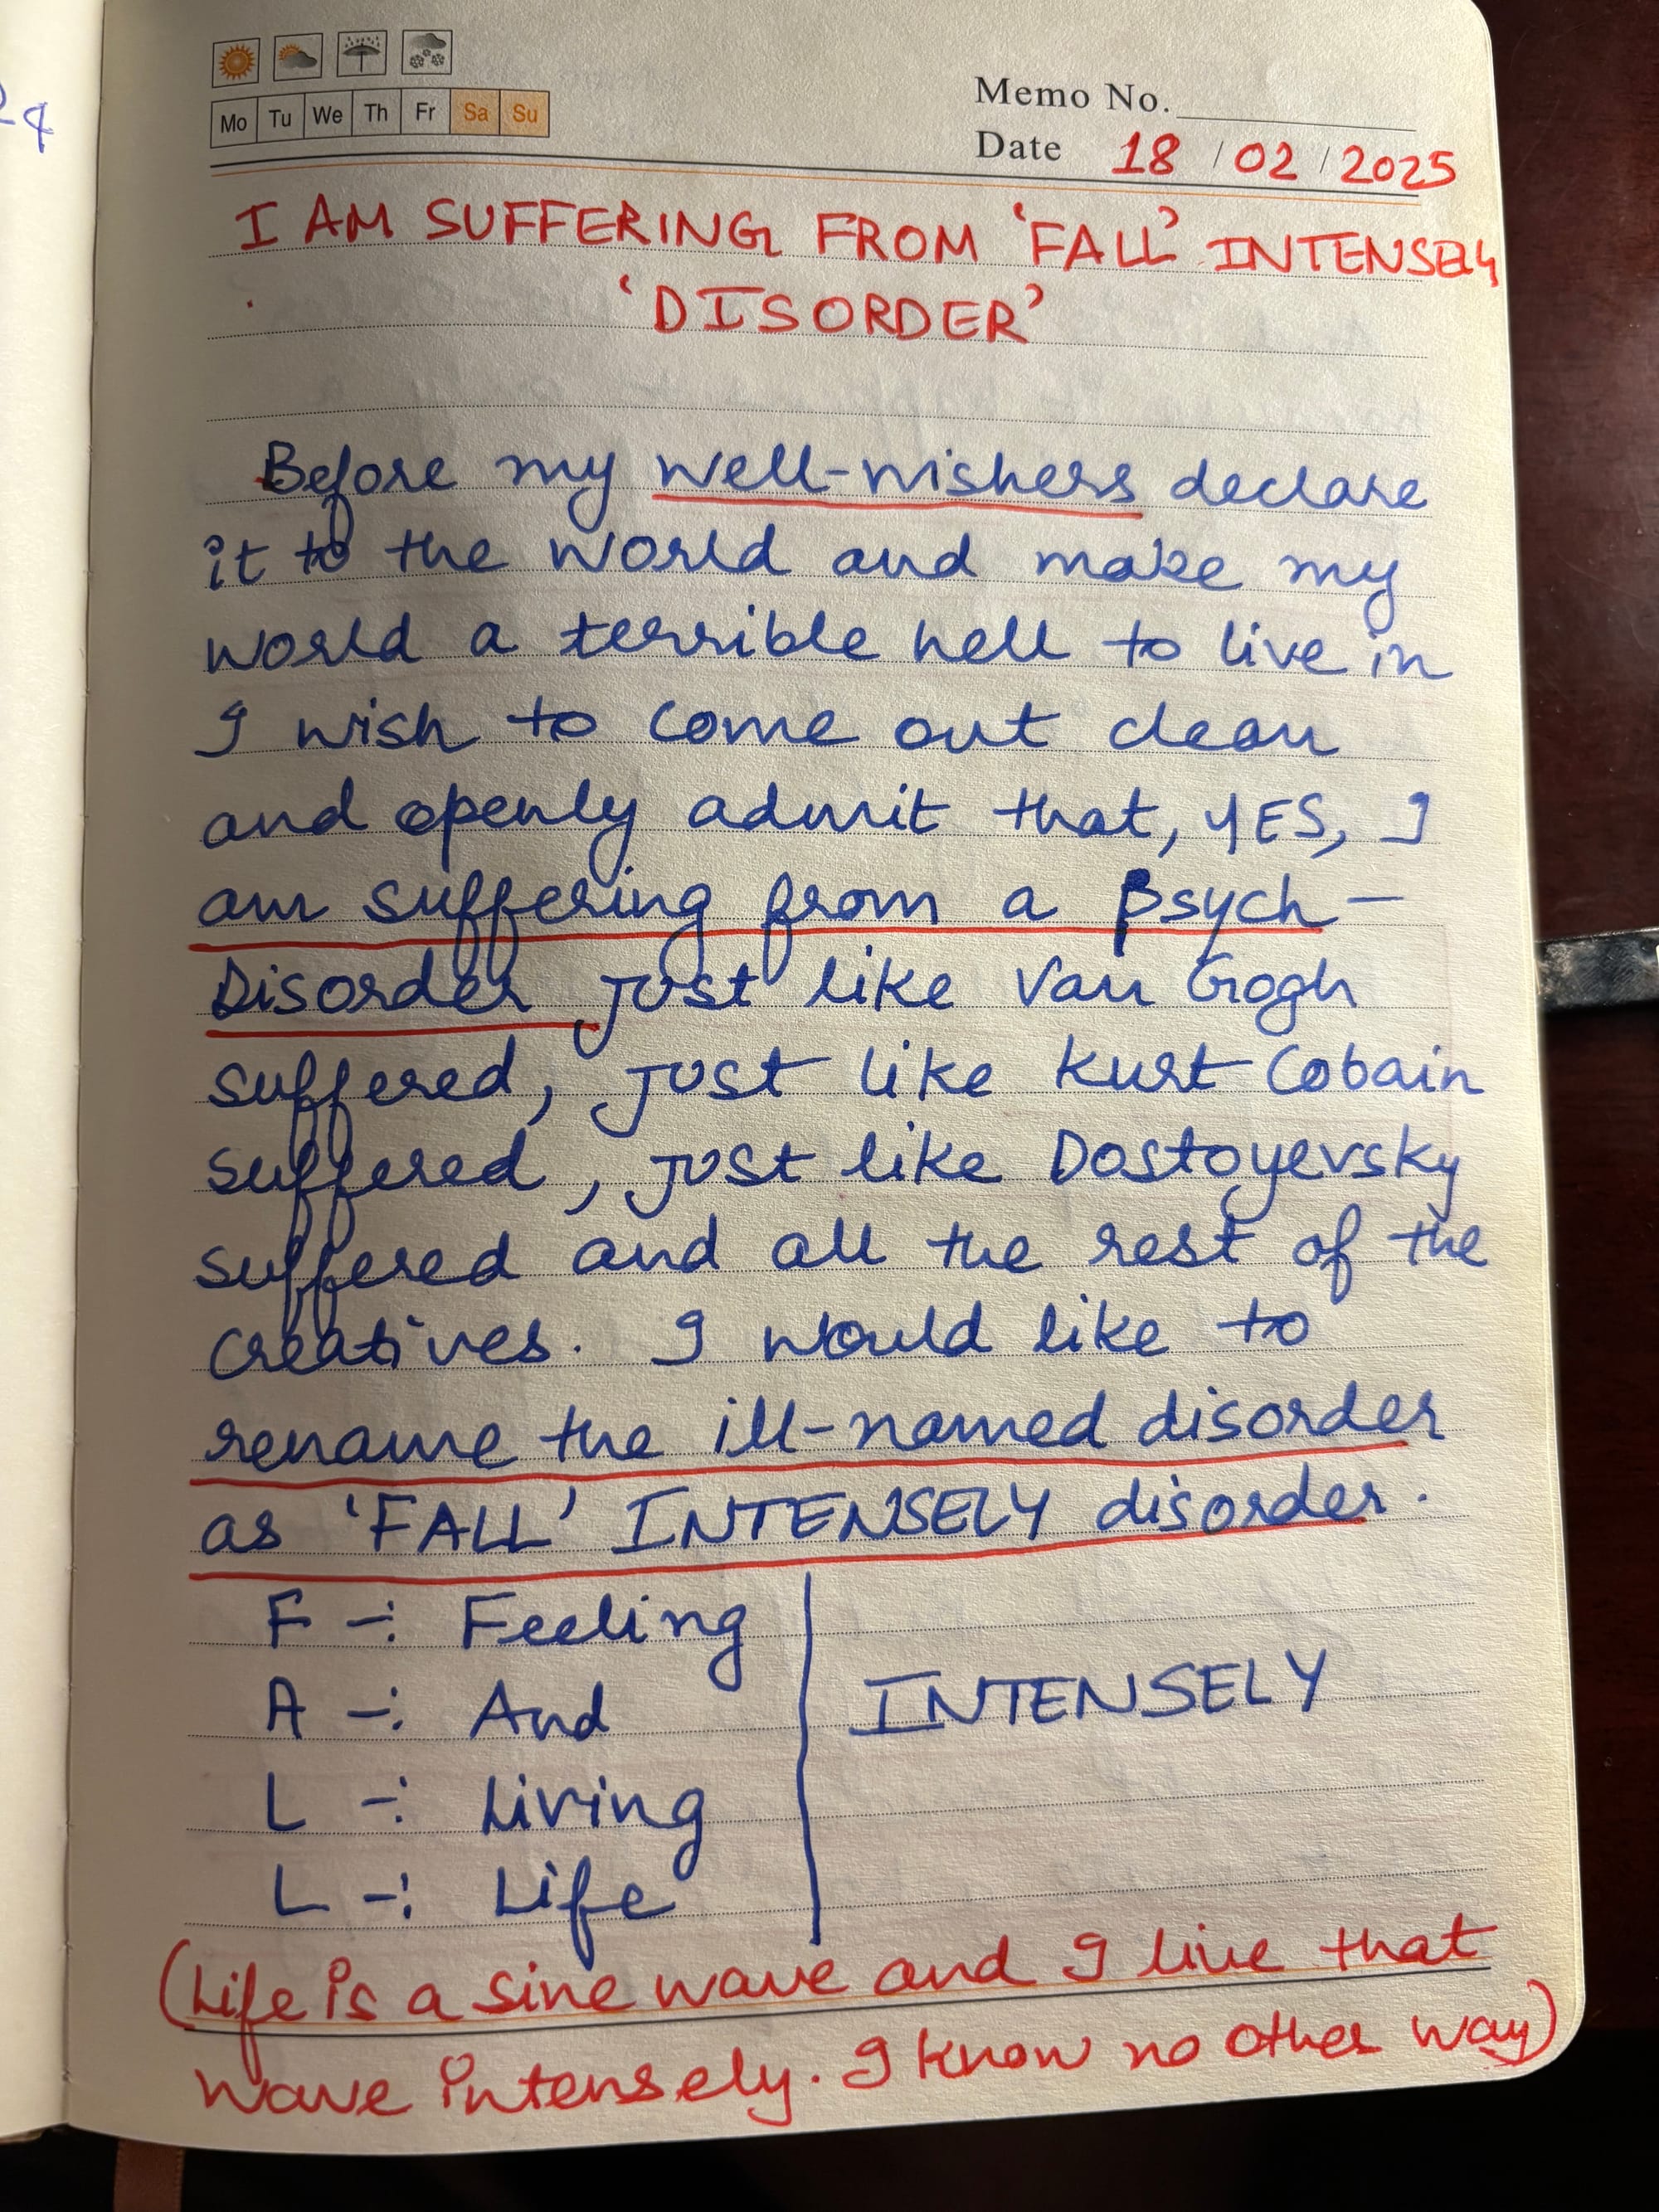 Mo Tu We Th Fr Sa Su
Memo No.
Date 18 / 02 / 2025
I AM SUFFERING FROM 'FALL' INTENSELY
'DISORDER'
Before my well-wishers declare
it to the world and make my
world a terrible hell to live in
I wish to come out clean
and openly admit that, YES, I
am suffering from a Psych-
Disorder just like Van Gogh
suffered, just like Kurt Cobain
suffered, just like Dostoyevsky
suffered and all the rest of the
creatives. I would like to
rename the ill-named disorder
as 'FALL' INTENSELY disorder.
F -: Feeling
A -: And
INTENSELY
L -: Living
L -: Life
(Life is a sine wave and I live that
wave intensely. I know no other way)